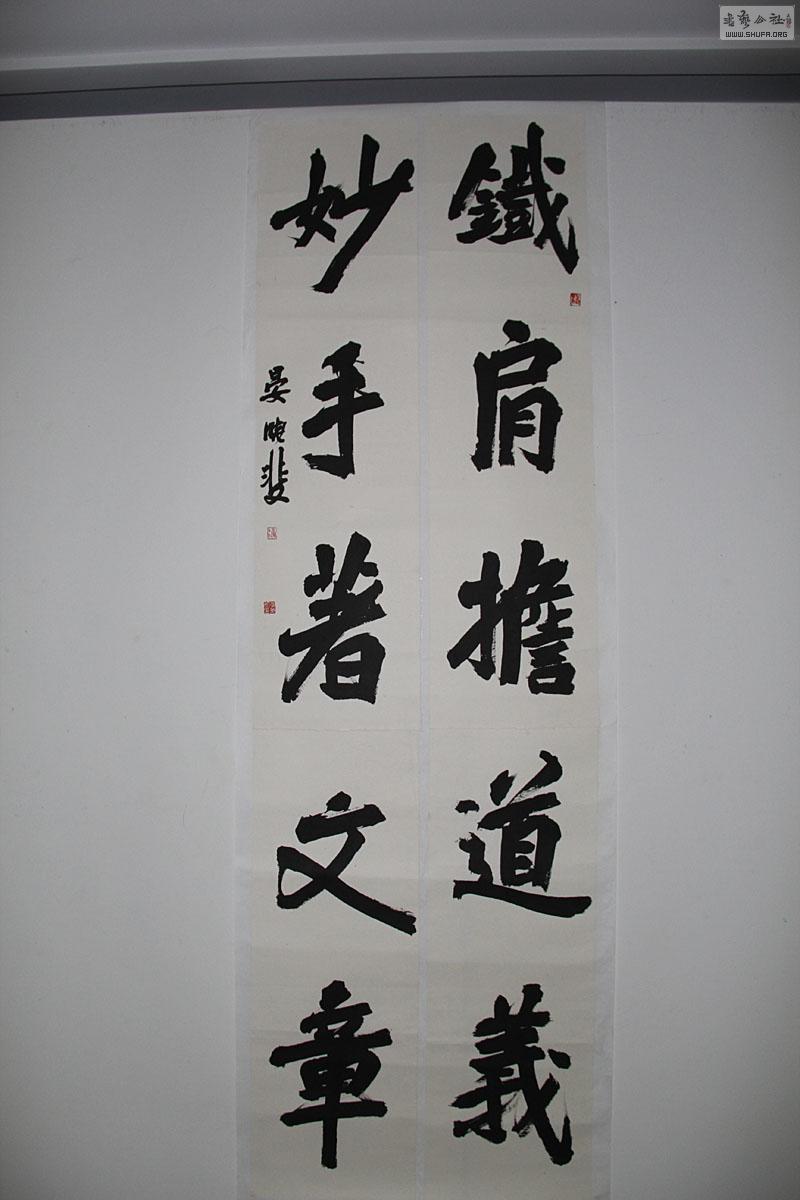 鐵肩擔道義
妙手著文章
晏晚斐
書藝公社
WWW.SHUFA.ORG